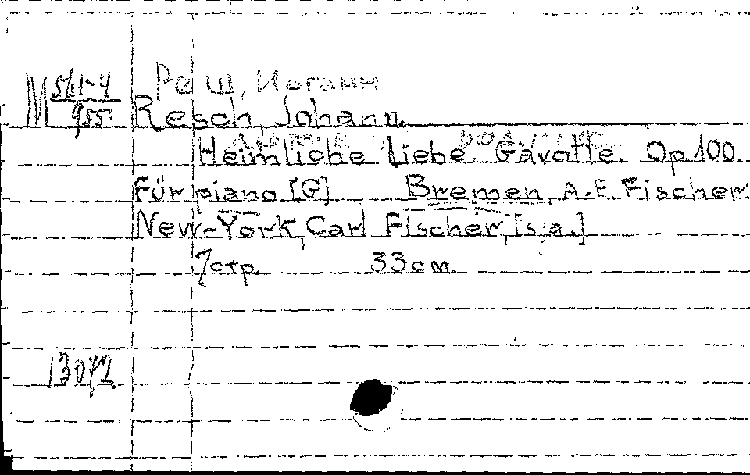 М 561-4
955
Реш, Иоганн
Resch, Johann.
Heimliche Liebe. Gavotte. Op 100.
Für piano [G] Bremen, A. E. Fischer
New-York, Carl Fischer, [s. a.]
7 стр. 33 см.